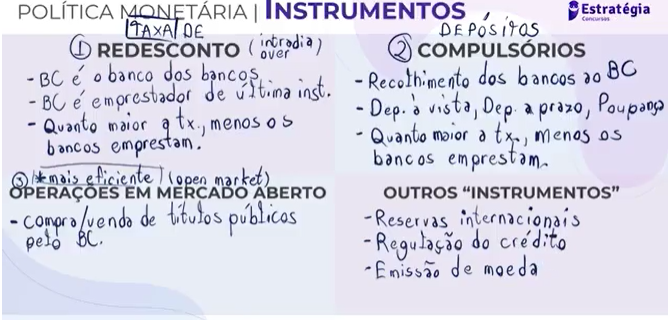 POLÍTICA MONETÁRIA | INSTRUMENTOS
Estratégia
Concursos
TAXA DE
① REDESCONTO (intradia/over)
- BC é o banco dos bancos
- BC é emprestador de última inst.
- Quanto maior a tx., menos os
bancos emprestam.
DEPÓSITOS
② COMPULSÓRIOS
- Recolhimento dos bancos ao BC
- Dep. à vista, Dep. a prazo, Poupança
- Quanto maior a tx., menos os
bancos emprestam.
③ *mais eficiente (open market)
OPERAÇÕES EM MERCADO ABERTO
- Compra/venda de títulos públicos
pelo BC.
OUTROS “INSTRUMENTOS”
- Reservas internacionais
- Regulação do crédito
- Emissão de moeda